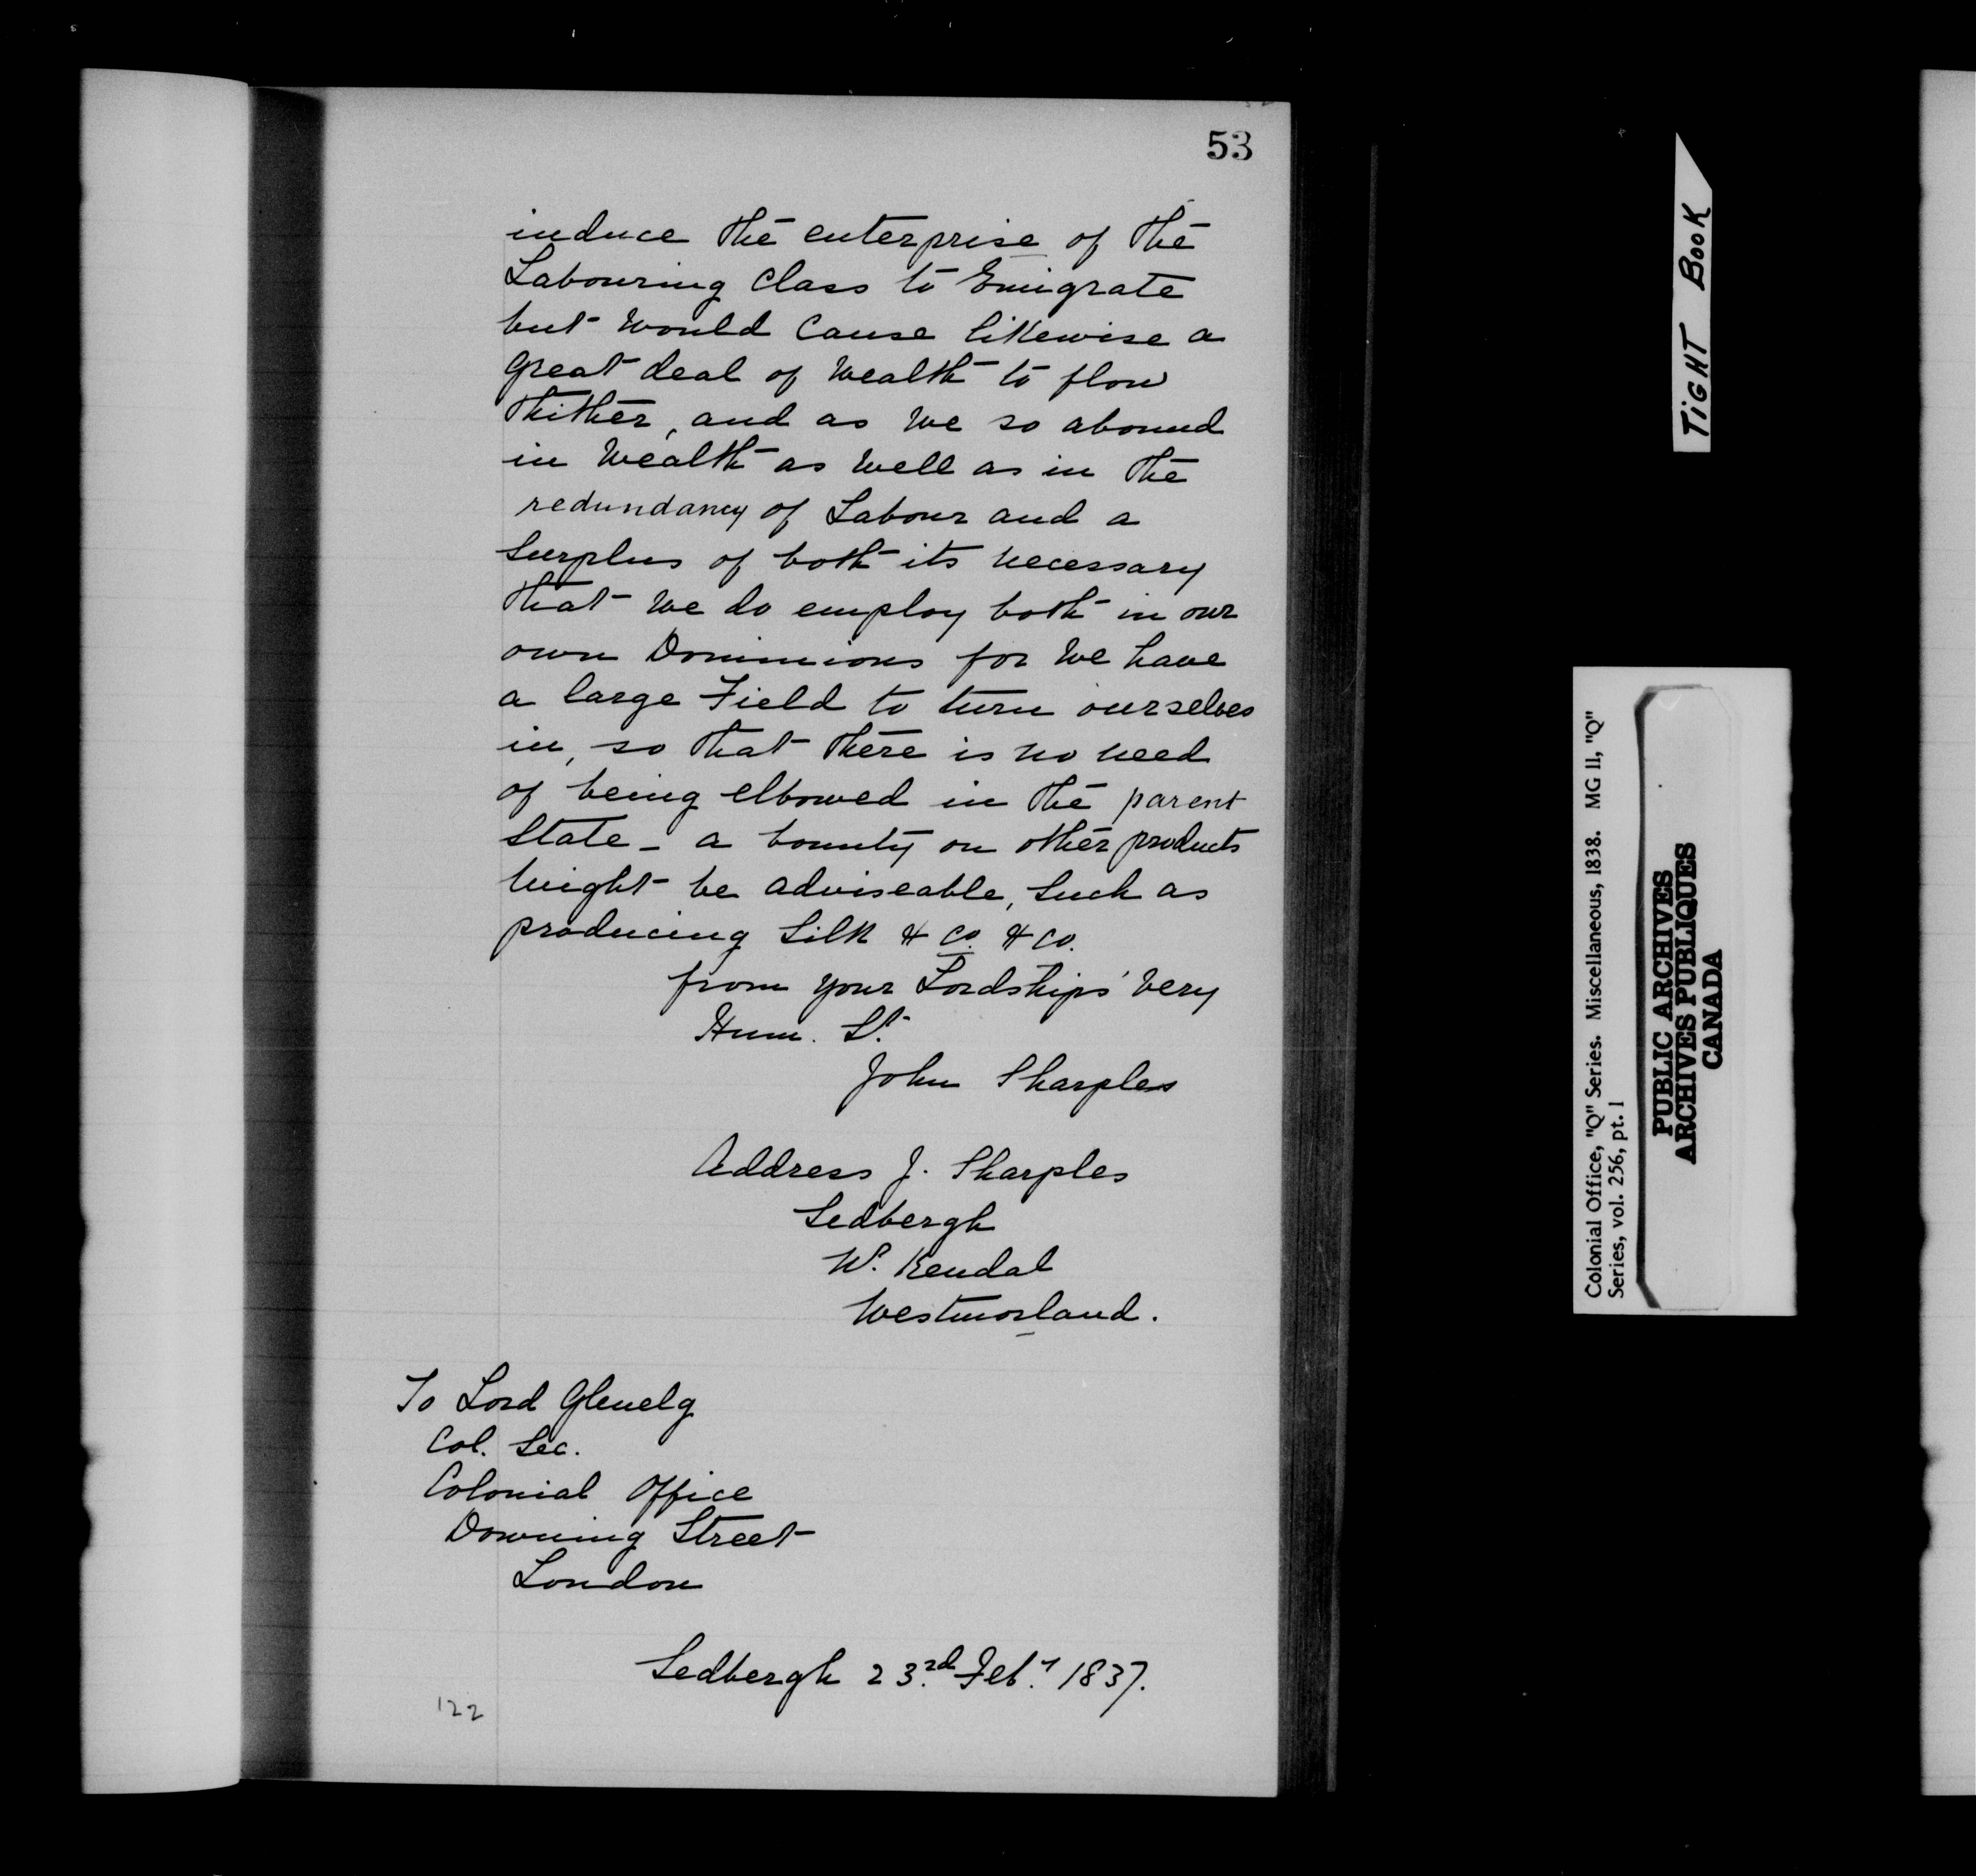 53
induce the enterprise of the
Labouring Class to Emigrate
but would Cause likewise a
great deal of Wealth to flow
thither, and as we so abound
in Wealth as well as in the
redundancy of Labour and a
Surplus of both its necessary
that we do employ both in our
own Dominions for we have
a large Field to turn ourselves
in, so that there is no need
of being elbowed in the parent
State - a bounty on other products
might be adviseable, Such as
producing Silk & Co. & Co.
from your Lordships' very
Hum. St.
John Sharples
Address J. Sharples
Sedbergh
Nr. Kendal
Westmorland.
To Lord Glenelg
Col. Sec.
Colonial Office
Downing Street
London
Sedbergh 23.rd Feb.y 1837.
122
TiGHT BooK
Colonial Office, "Q" Series. Miscellaneous, 1838. MG 11, "Q"
Series, vol. 256, pt. 1
PUBLIC ARCHIVES
ARCHIVES PUBLIQUES
CANADA